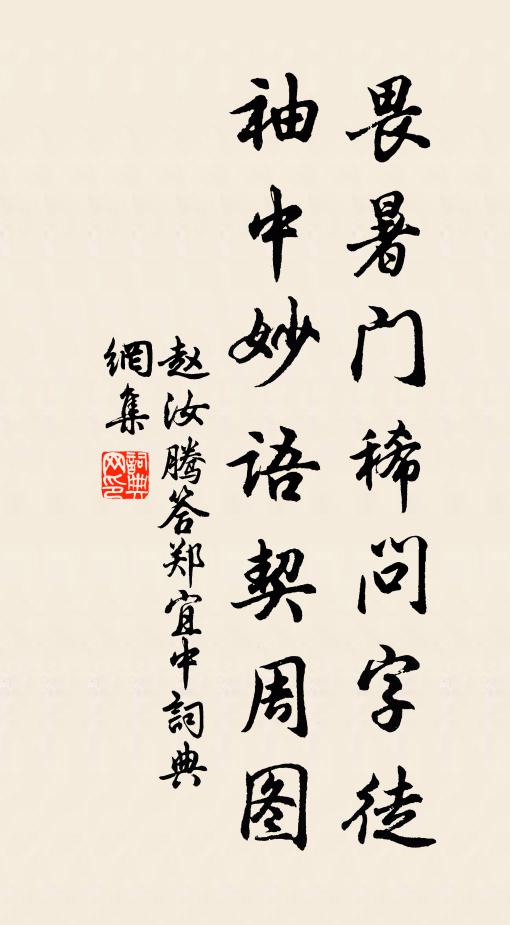 畏暑门稀问字徒
袖中妙语契周图
赵汝腾答郑宜中詞典
網集
詞典
网印